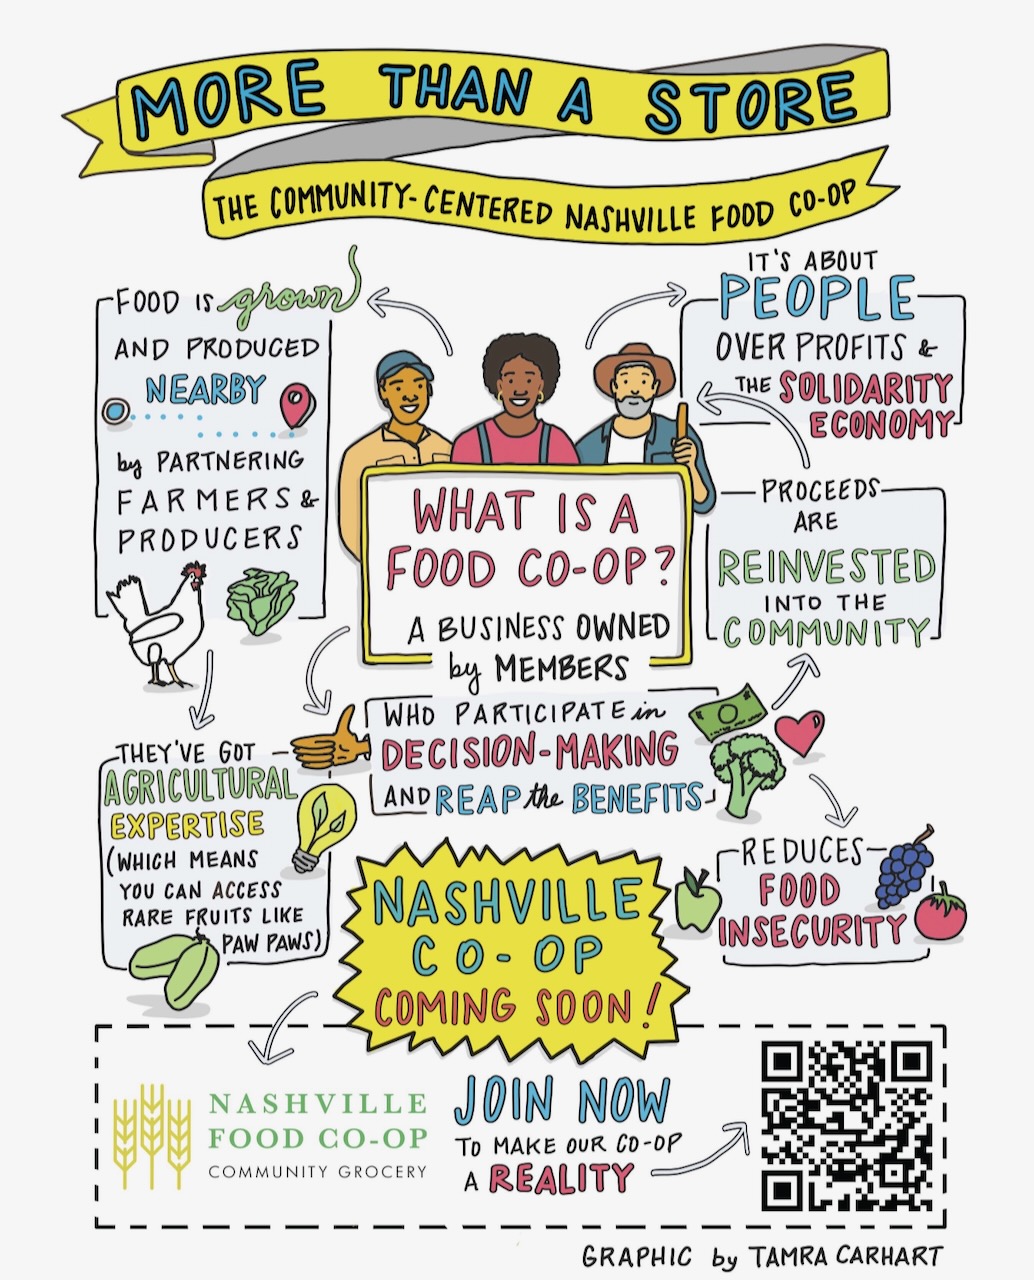 MORE THAN A STORE
THE COMMUNITY-CENTERED NASHVILLE FOOD CO-OP
FOOD IS grown
AND PRODUCED
NEARBY
by PARTNERING
FARMERS &
PRODUCERS
IT'S ABOUT
PEOPLE
OVER PROFITS &
THE SOLIDARITY
ECONOMY
WHAT IS A
FOOD CO-OP?
A BUSINESS OWNED
by MEMBERS
PROCEEDS
ARE
REINVESTED
INTO THE
COMMUNITY
WHO PARTICIPATE in
DECISION-MAKING
AND REAP the BENEFITS
THEY'VE GOT
AGRICULTURAL
EXPERTISE
(WHICH MEANS
YOU CAN ACCESS
RARE FRUITS LIKE
PAW PAWS)
REDUCES
FOOD
INSECURITY
NASHVILLE
CO-OP
COMING SOON!
NASHVILLE
FOOD CO-OP
COMMUNITY GROCERY
JOIN NOW
TO MAKE OUR CO-OP
A REALITY
GRAPHIC by TAMRA CARHART